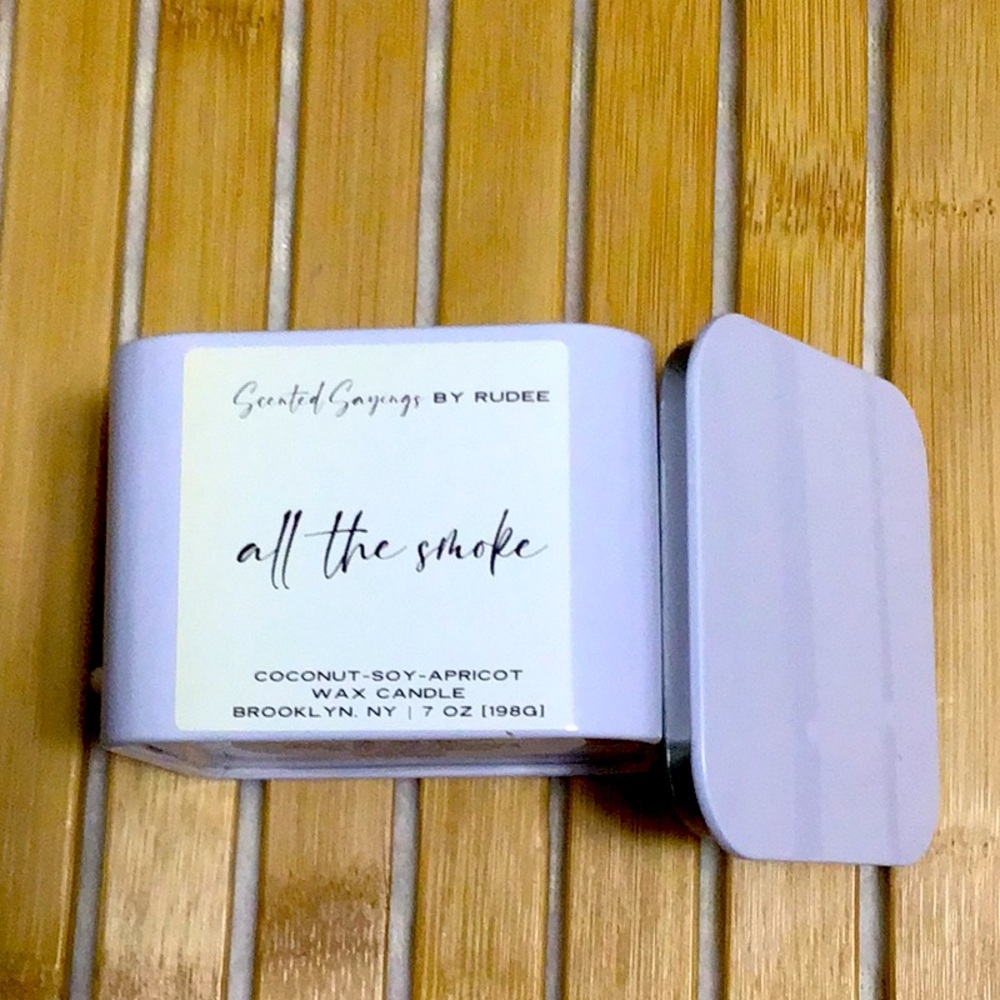 Scented Sayings BY RUDEE
all the smoke
COCONUT-SOY-APRICOT
WAX CANDLE
BROOKLYN, NY | 7 OZ [198G]